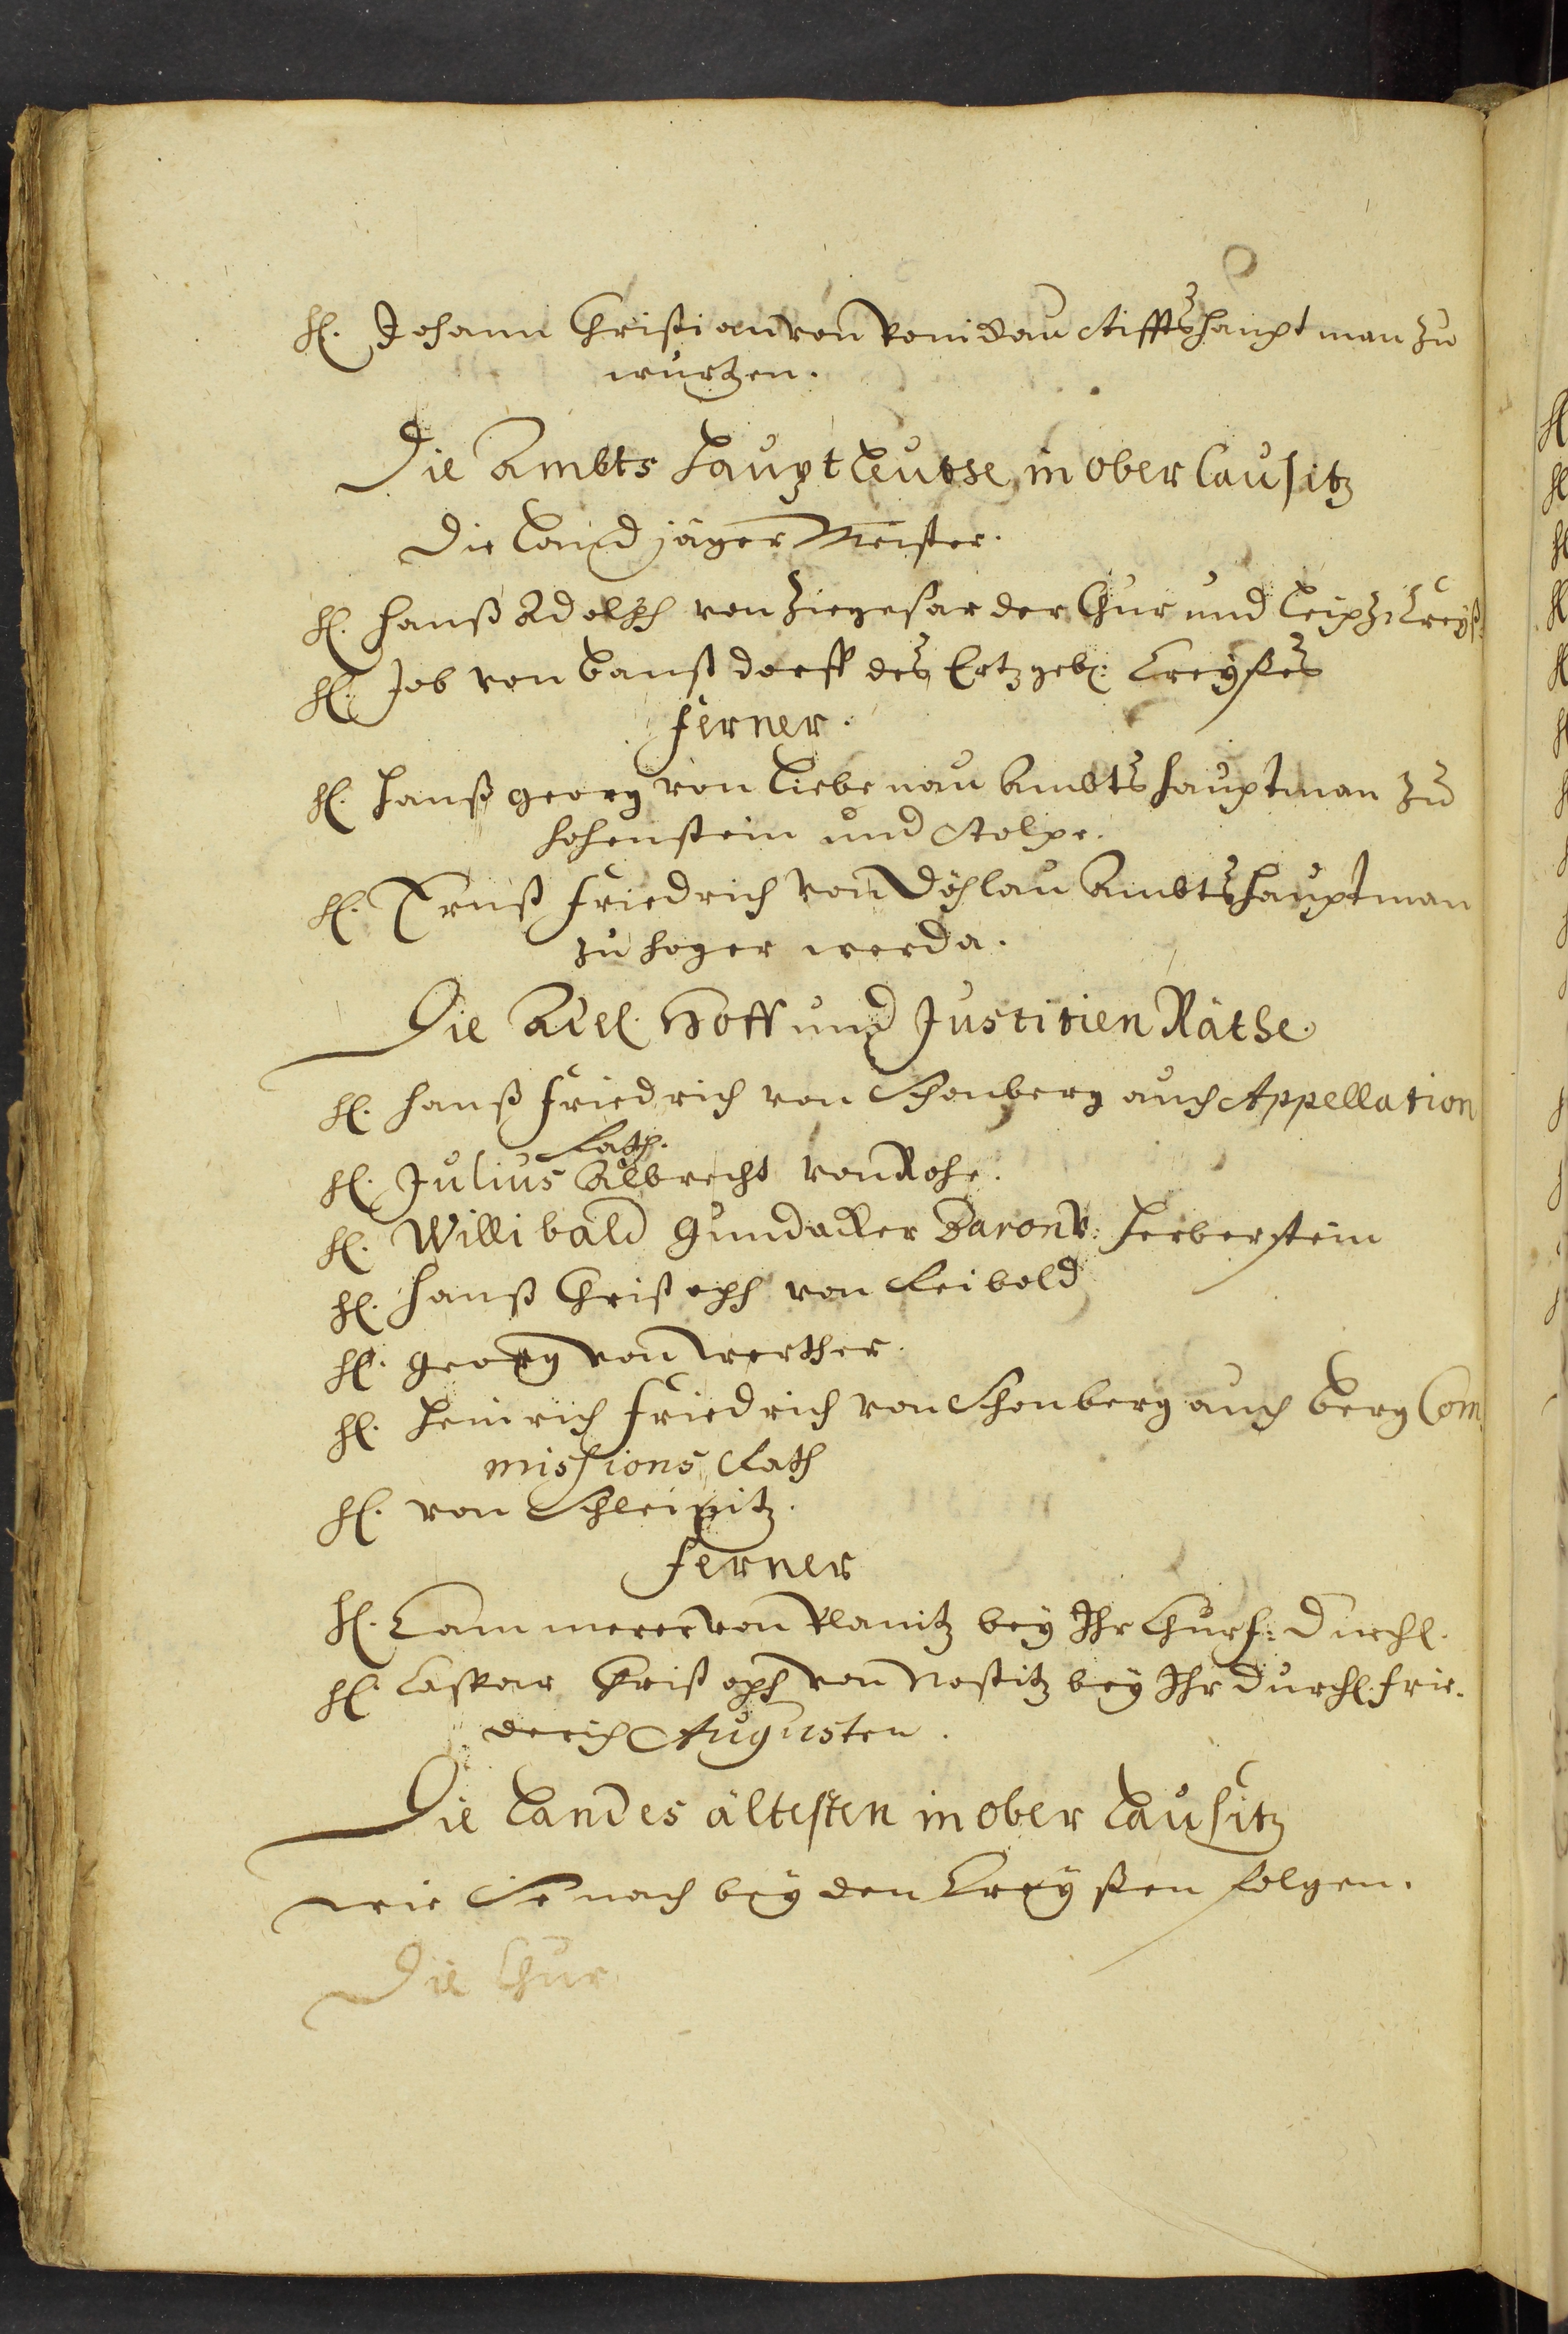 H. Johann Christian von Ponickau Stifftshauptman zu
wurtzen.
Die Ambts Hauptleuthe, in ober lausitz
Die Landjäger Meister.
H. Hanß Adolph von Ziegesar der Chur und Leipz: Creyß.
H. Job von banßdorff des Ertzgeb: Creyßes
ferner.
H. Hanß georg von Liebenau Ambtshauptman zu
Hohenstein und Stolpe.
H. Ernst Friedrich von Döhlau Ambtshauptman
zu hoyerwerda.
Die Adel. Hoff und Justitien Räthe.
H. Hanß Friedrich von Schonberg auch Appellation
Rath.
H. Julius Albrecht von Rohr.
H. Willibald Gundacker Baron v: Herberstein
H. Hanß Christoph von Reibold
H. georg von werther.
H. Heinrich Friedrich von Schonberg auch Berg Com
missions Rath
H. von Schleinitz.
ferner
H. Cammerer von Planitz bey Ihr Churf: Durchl.
H. Caspar Christoph von Nostitz bey Ihr Durchl: Frie-
derich Augusten.
Die Landes ältesten in ober Lausitz
wie Sie nach beyden Creyßen folgen.
Die Chur